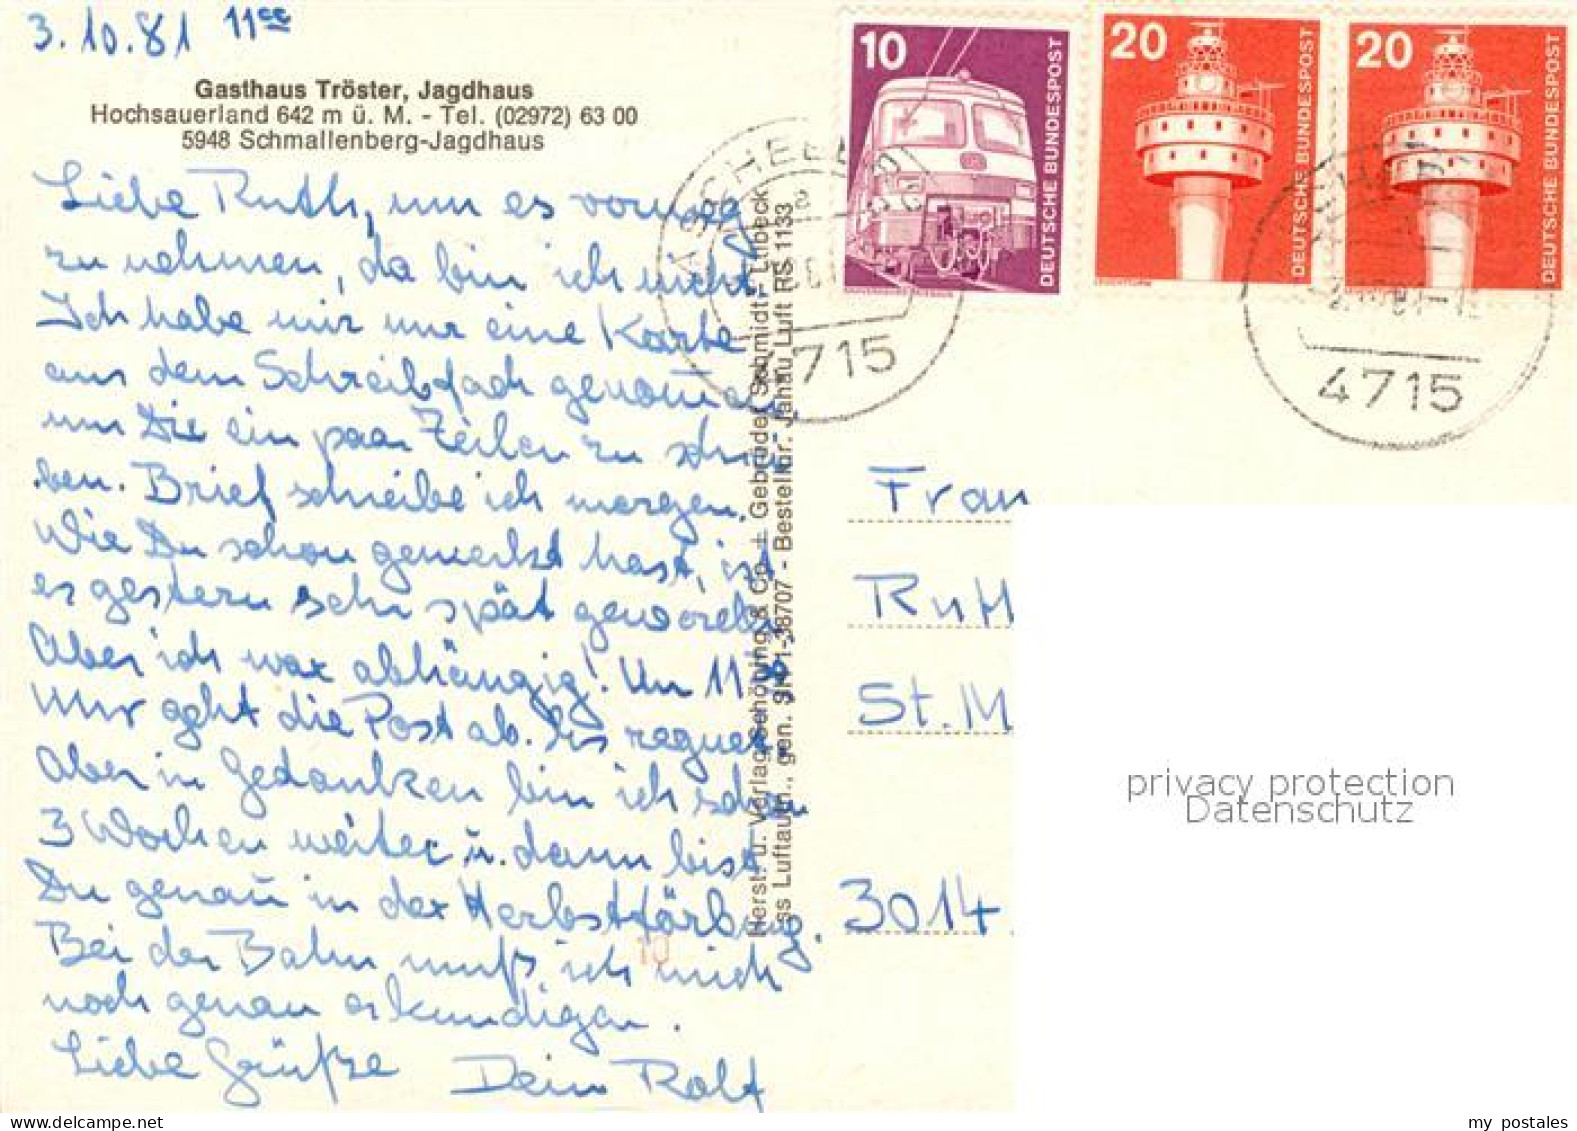 3.10.81 11°°
Gasthaus Tröster, Jagdhaus
Hochsauerland 642 m ü. M. - Tel. (02972) 63 00
5948 Schmallenberg-Jagdhaus
Liebe Ruth, um es vorweg
zu nehmen, da bin ich nicht.
Ich habe mir nur eine Karte
aus dem Schreibfach genommen,
um Dir ein paar Zeilen zu schrei
ben. Brief schreibe ich morgen.
Wie Du schon gemerkt hast, ist
es gestern sehr spät geworden.
Aber ich war abhängig! Um 11°°
Uhr geht die Post ab. Es regnet.
Aber in Gedanken bin ich schon
3 Wochen weiter u. dann bist
Du genau in der Herbstfärbung.
Bei der Bahn muß ich mich
noch genau erkundigen.
Liebe Grüße Dein Rolf
10
Herst. u. Verlag Schöning & Co + Gebrüder Schmidt - Lübeck
ss Luftaufn., gen. SH 1-38707 - Bestellnr. Jahau Luft RS 1133
10 DEUTSCHE BUNDESPOST
20 DEUTSCHE BUNDESPOST
20 DEUTSCHE BUNDESPOST
ASCHEBERG
a
4715
4715
Frau
Ruth
St. M
3014
privacy protection
Datenschutz
my postales